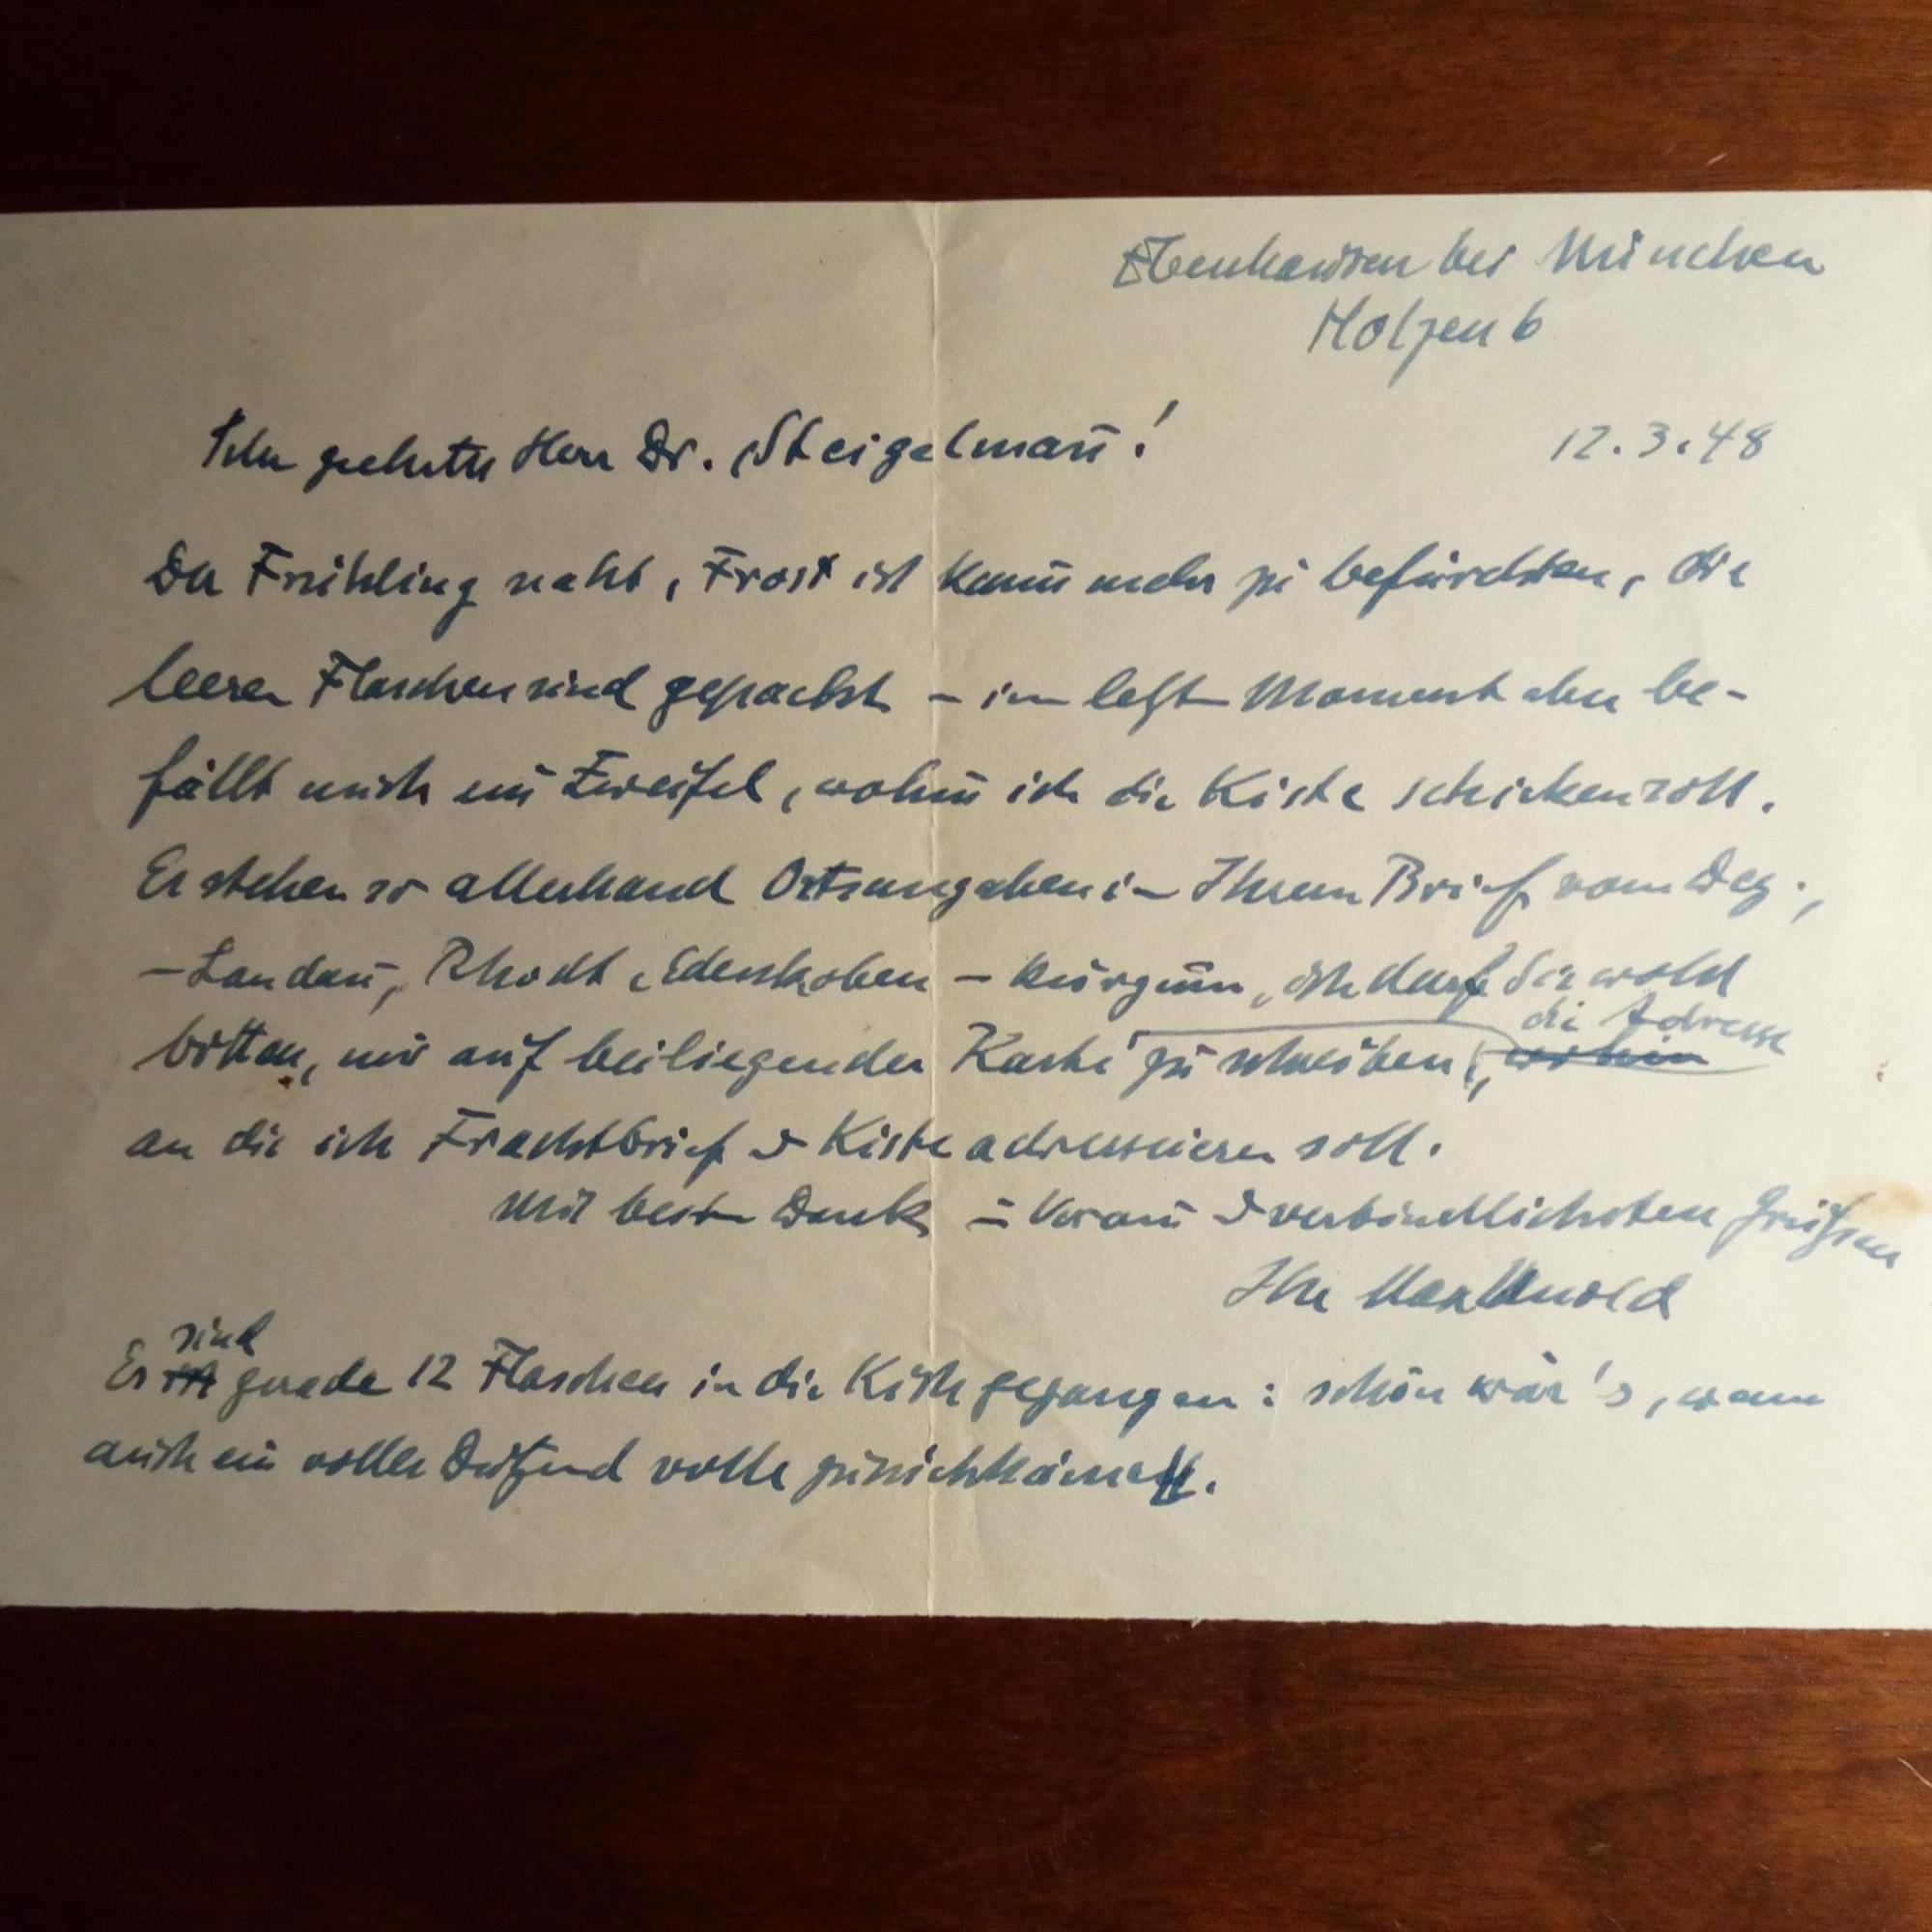 Ebenhausen bei München
Holzen 6
Sehr geehrter Herr Dr. Steigelmann!
12.3.48
Der Frühling naht, Frost ist kaum mehr zu befürchten, die
leeren Flaschen sind gepackt – im letzten Moment aber be-
fällt mich ein Zweifel, wohin ich die Kiste schicken soll.
Es stehen so allerhand Ortsangaben in Ihrem Brief vom Dez.,
– Landau, Rhodt, Edenkoben – kurzum, ich darf Sie wohl
die Adresse
bitten, mir auf beiliegender Karte zu schreiben, wohin
an die ich Frachtbrief & Kiste adressieren soll.
Mit bestem Dank im Voraus & verbindlichsten Grüßen
Ihr Max Unold
sind
Es ist gerade 12 Flaschen in die Kiste gegangen: schön wär's, wenn
auch ein volles Dutzend volle zurückkämen.